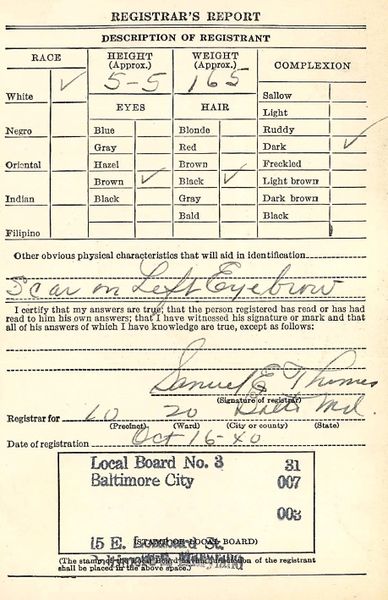 REGISTRAR'S REPORT
DESCRIPTION OF REGISTRANT
RACE
HEIGHT (Approx.)
WEIGHT (Approx.)
COMPLEXION
✓
5-5
165
White
EYES
HAIR
Sallow
Light
Negro
Blue
Blonde
Ruddy
Gray
Red
Dark ✓
Oriental
Hazel
Brown
Freckled
Brown ✓
Black ✓
Light brown
Indian
Black
Gray
Dark brown
Bald
Black
Filipino
Other obvious physical characteristics that will aid in identification
Scar on Left Eyebrow
I certify that my answers are true; that the person registered has read or has had
read to him his own answers; that I have witnessed his signature or mark and that
all of his answers of which I have knowledge are true, except as follows:
Samuel E Thomas
(Signature of registrar)
Registrar for 10 20 Balto Md.
(Precinct) (Ward) (City or county) (State)
Date of registration Oct 16-40
Local Board No. 3 31
Baltimore City 007
003
15 E. St.
(STAMP OF LOCAL BOARD)
(The stamp of the Local Board of the registrant
shall be placed in the above space.)